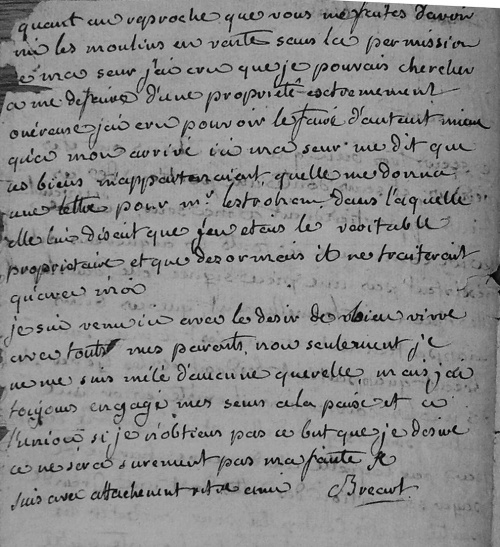 quant au reproche que vous me faites d'avoir
mi les moulins en vante sans la permission
de ma seur j'ai cru que je pouvais chercher
a me defaire d'une proprieté extremement
onéreuse j'ai cru pouvoir le faire d'autant mieux
qu'a mon arrivé ici ma seur me dit que
ces biens m'appartenaient quelle me donna
une lettre pour mr. lestrohan dans l'aquelle
elle lui disent que j'en etais le veritable
propriotaire et que desormais il ne traiterait
qu'avec moi
je suis venu ici avec le desir de bien vivre
avec touts mes parents, non seulement je
ne me suis mélé d'aucune querelle, mais j'ai
toujours engagé mes seurs a la paix et a
l'union si je n'obtiens pas ce but que je desire
ce ne sera surement pas ma faute je
suis avec attachement votre ami Brecart.